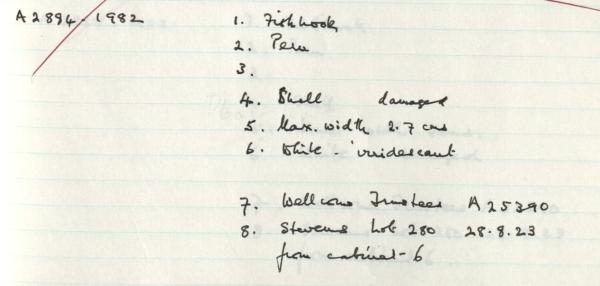 A2894.1982 1. Fishhook
2. Peru
3.
4. Shell damaged
5. Max. width 2.7 cms
6. White - irridescent
7. Wellcome Trustees A25390
8. Stevens Lot 280 28.8.23
from cabinet-6